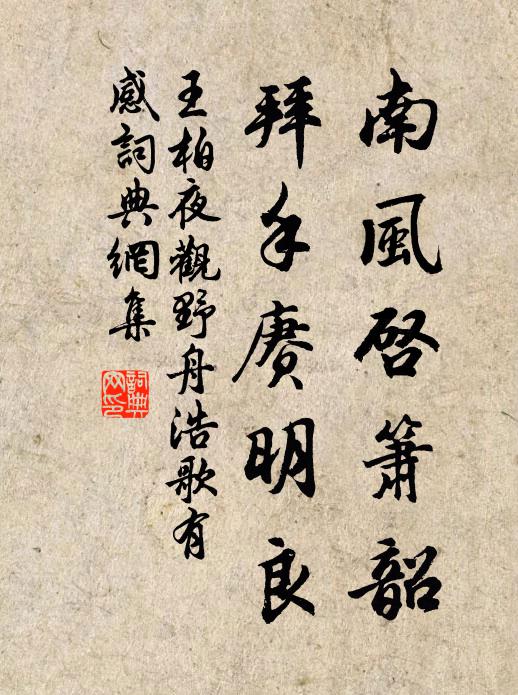 南風啓簫韶
拜手賡明良
王柏夜觀野舟浩歌有
感詞典網集
詞典
网印